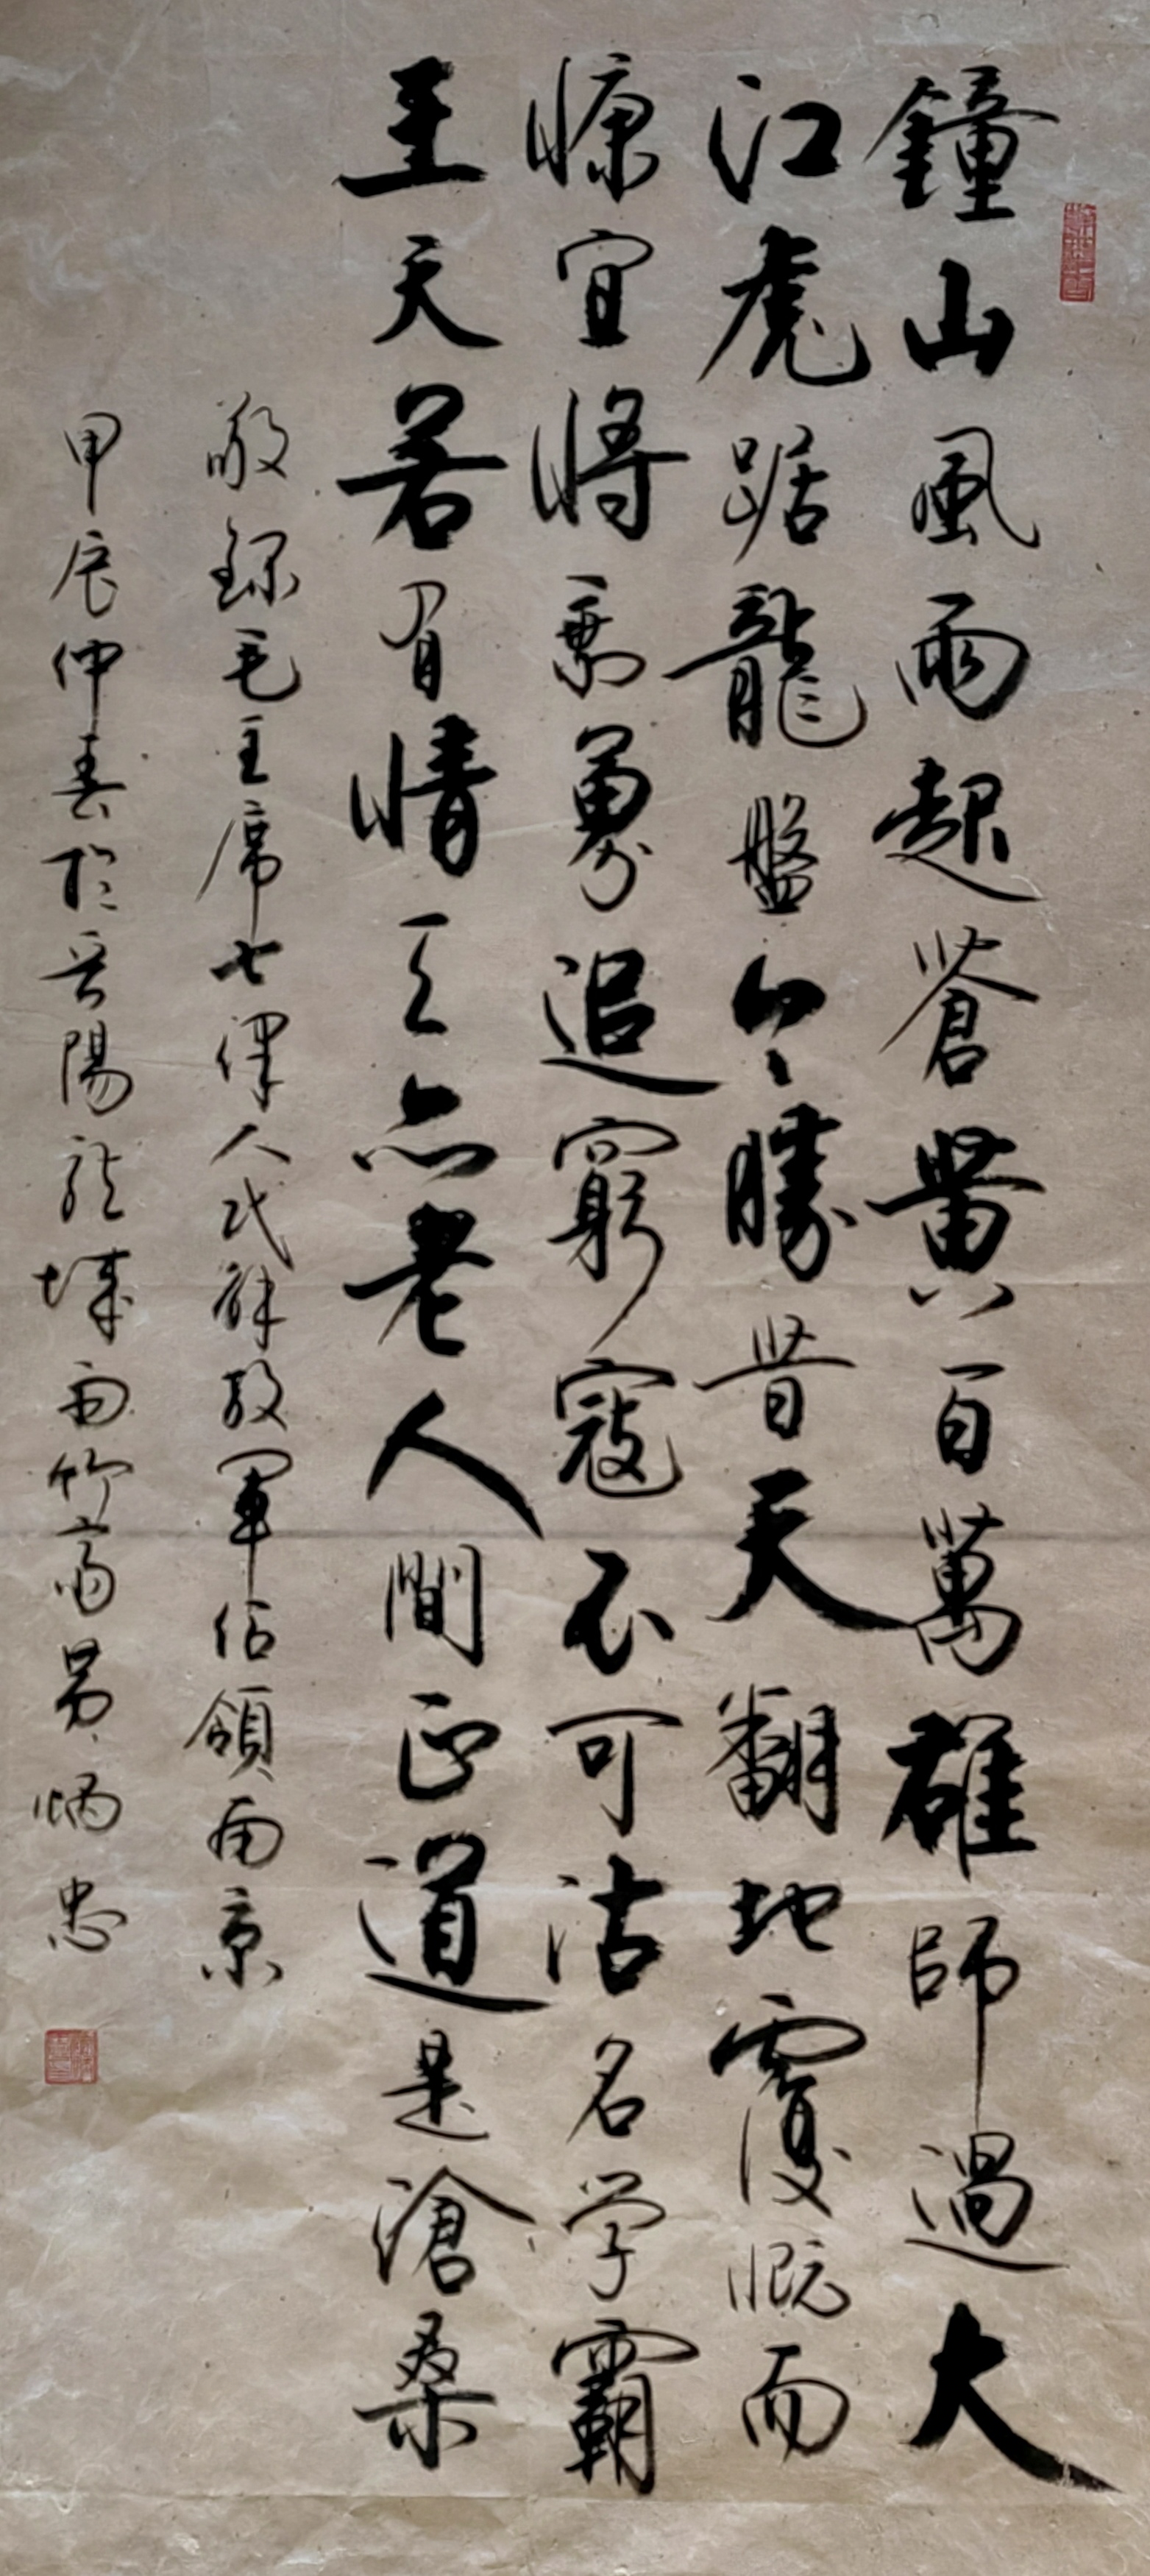 鐘山風雨起蒼黃百萬雄師過大
江虎踞龍盤今勝昔天翻地覆慨而
慷宜將剩勇追窮寇不可沽名学霸
王天若有情天亦老人間正道是滄桑
敬錄毛主席七律人民解放軍佔領南京
甲辰仲春於晉陽龍城竹齋炳忠